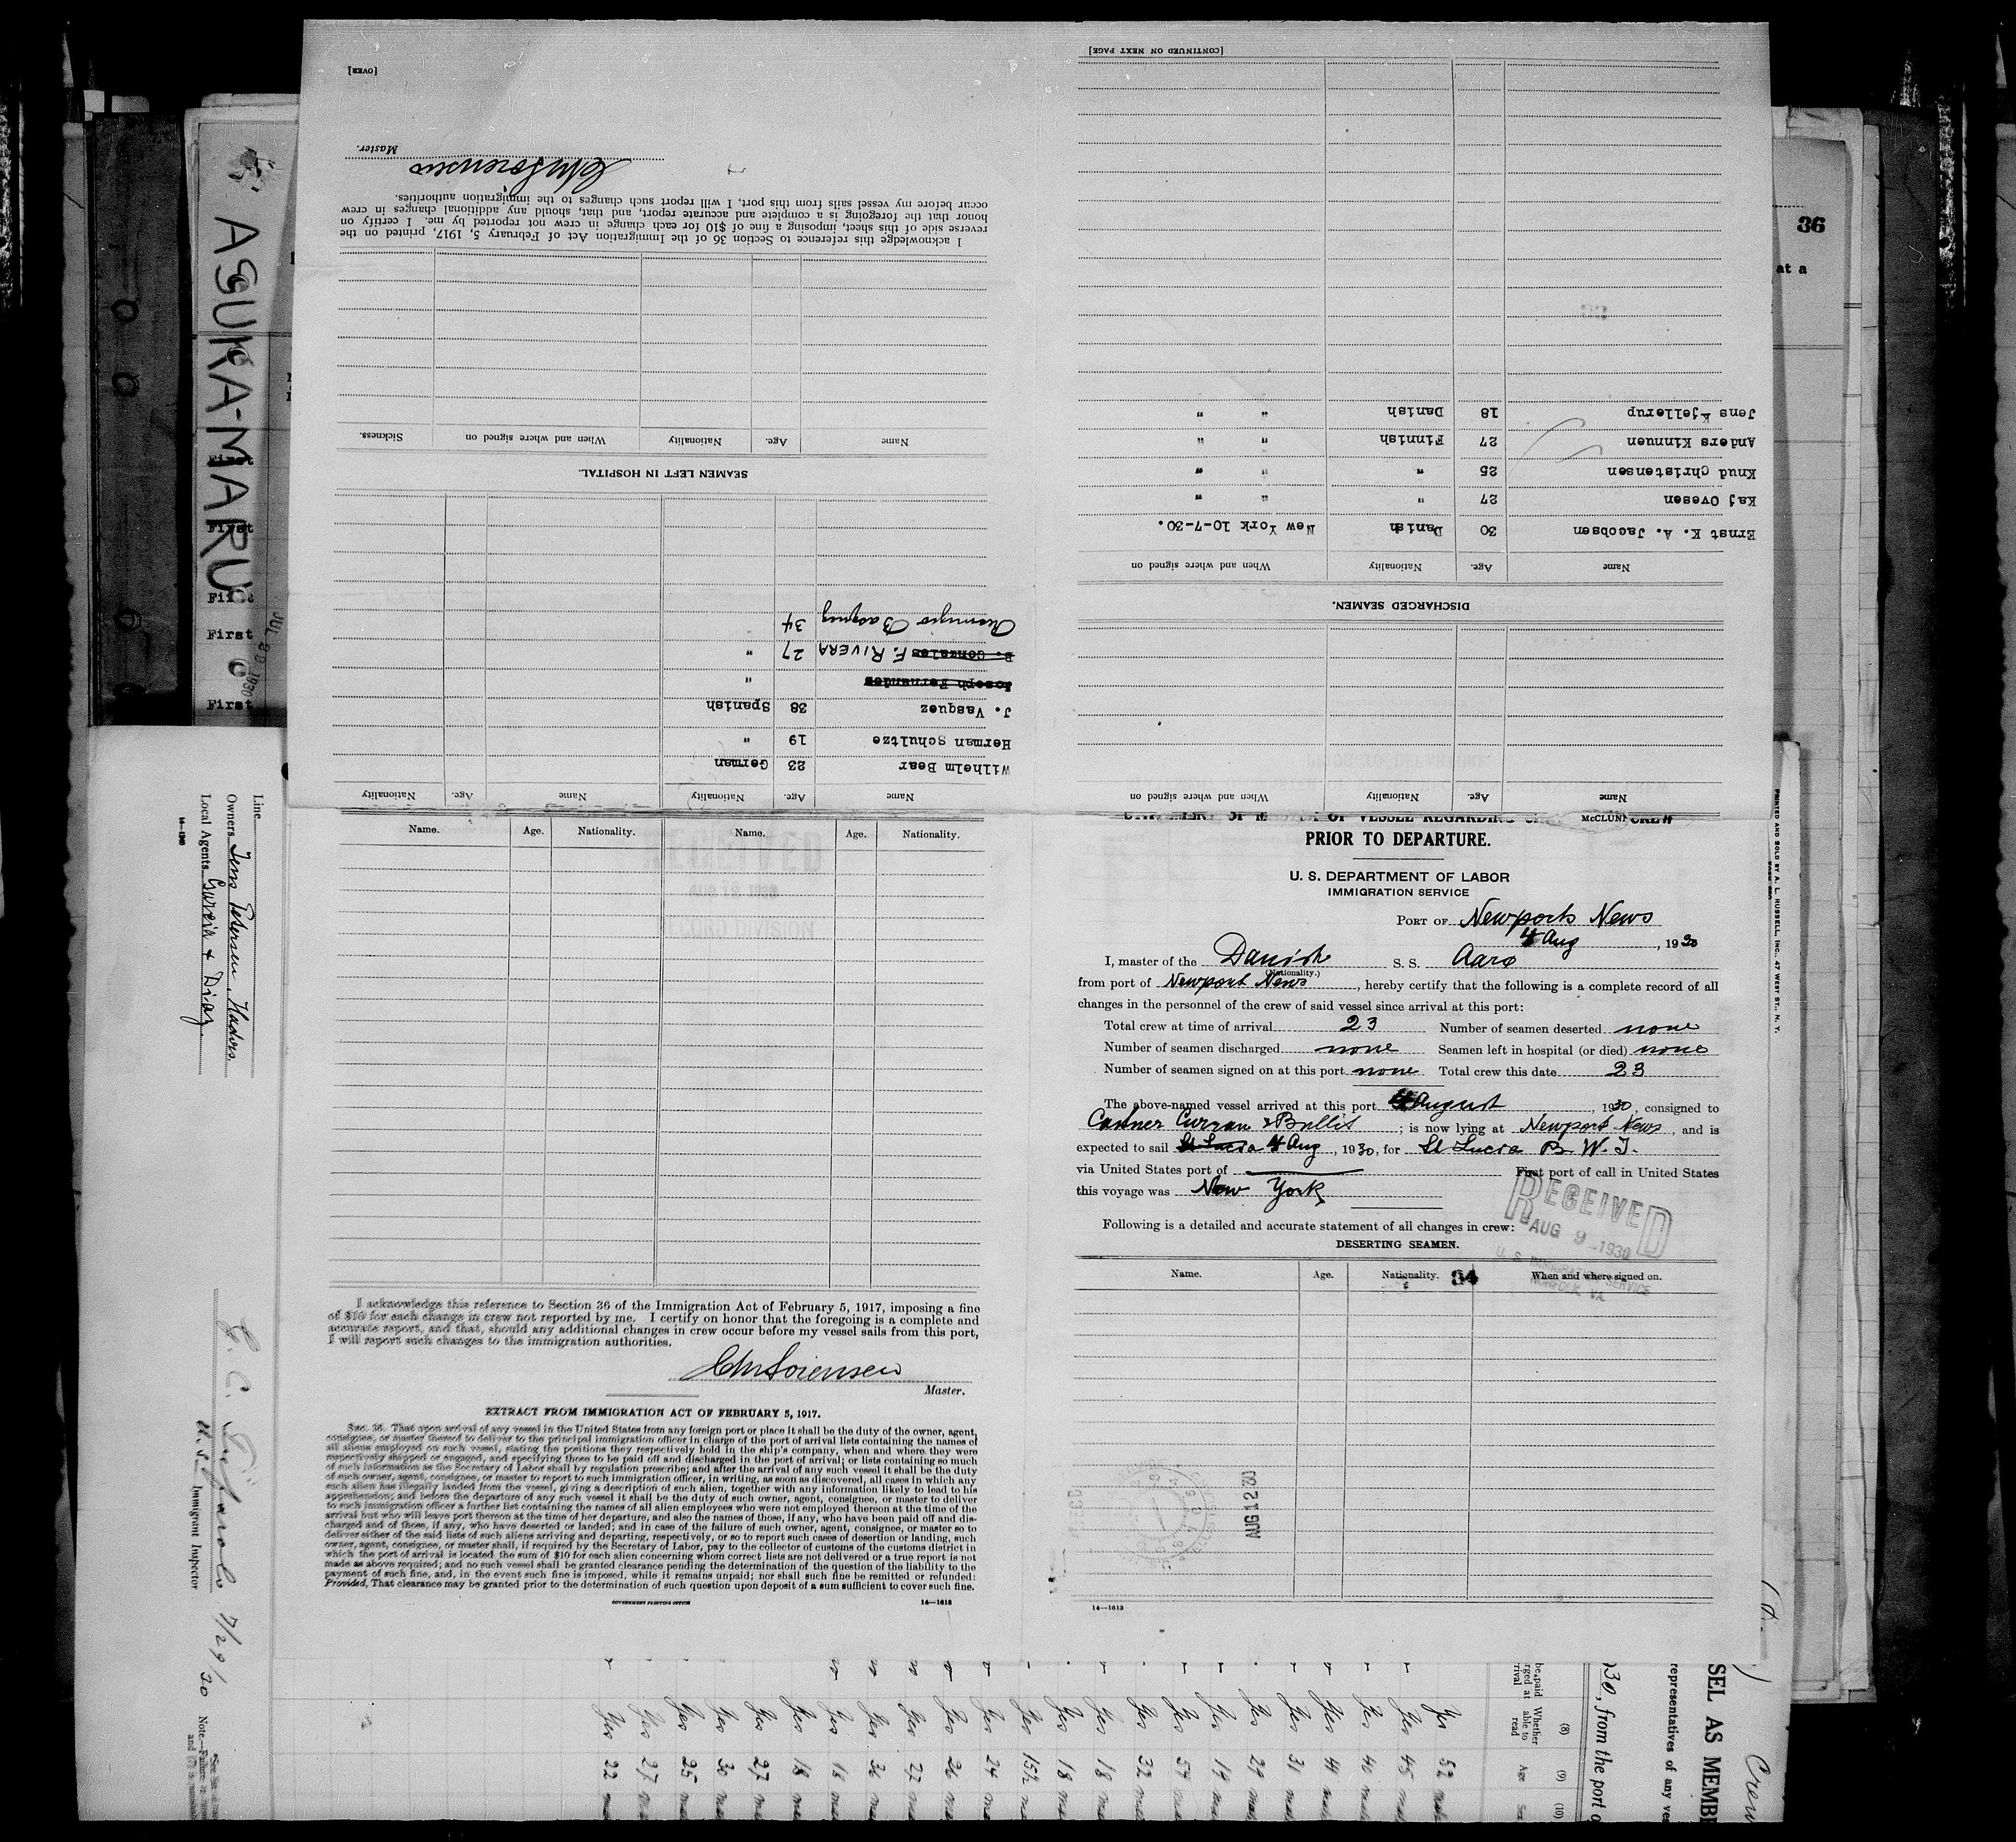 [CONTINUED ON NEXT PAGE]
Jens Kjellerup 18 Danish " "
Anders Kinnuen 27 Finnish " "
Knud Christensen 25 " " "
Kaj Ovesen 27 " " "
Ernst K. A. Jacobsen 30 Danish New York 10-7-30.
Name Age. Nationality When and where signed on
DISCHARGED SEAMEN.
Name Age. Nationality When and where signed on
[OVER]
Master.
Chr Sorensen
I acknowledge this reference to Section 36 of the Immigration Act of February 5, 1917, printed on the
reverse side of this sheet, imposing a fine of $10 for each change in crew not reported by me. I certify on
honor that the foregoing is a complete and accurate report, and that, should any additional changes in crew
occur before my vessel sails from this port, I will report such changes to the immigration authorities.
Name Age. Nationality When and where signed on Sickness.
SEAMEN LEFT IN HOSPITAL.
34
B. Gonzales F. RIVERA 27 "
Joseph Fernandes "
J. Vasquez 38 Spanish
Herman Schultze 19 "
Wilhelm Bear 23 German
Name Age. Nationality Name Age. Nationality
Name. Age. Nationality. Name. Age. Nationality.
RECEIVED
AUG 1930
RECORD DIVISION
I acknowledge this reference to Section 36 of the Immigration Act of February 5, 1917, imposing a fine
of $10 for each change in crew not reported by me. I certify on honor that the foregoing is a complete and
accurate report, and that, should any additional changes in crew occur before my vessel sails from this port,
I will report such changes to the immigration authorities.
Chr Sorensen
Master.
EXTRACT FROM IMMIGRATION ACT OF FEBRUARY 5, 1917.
SEC. 36. That upon arrival of any vessel in the United States from any foreign port or place it shall be the duty of the owner, agent,
consignee, or master thereof to deliver to the principal immigration officer in charge of the port of arrival lists containing the names of
all aliens employed on such vessel, stating the positions they respectively hold in the ship's company, when and where they were
respectively shipped or engaged, and specifying those to be paid off and discharged in the port of arrival; or lists containing so much
of such information as the Secretary of Labor shall by regulation prescribe; and after the arrival of any such vessel it shall be the duty
of such owner, agent, consignee, or master to report to such immigration officer, in writing, as soon as discovered, all cases in which any
such alien has illegally landed from the vessel, giving a description of such alien, together with any information likely to lead to his
apprehension; and before the departure of any such vessel it shall be the duty of such owner, agent, consignee, or master to deliver
to such immigration officer a further list containing the names of all alien employees who were not employed thereon at the time of the
arrival but who will leave port thereon at the time of her departure, and also the names of those, if any, who have been paid off and dis-
charged and of those, if any, who have deserted or landed; and in case of the failure of such owner, agent, consignee, or master so to
deliver either of the said lists of such aliens arriving and departing, respectively, or so to report such cases of desertion or landing, such
owner, agent, consignee, or master shall, if required by the Secretary of Labor, pay to the collector of customs of the customs district in
which the port of arrival is located the sum of $10 for each alien concerning whom correct lists are not delivered or a true report is not
made as above required; and no such vessel shall be granted clearance pending the determination of the question of the liability to the
payment of such fine, and, in the event such fine is imposed, while it remains unpaid; nor shall such fine be remitted or refunded:
Provided, That clearance may be granted prior to the determination of such question upon deposit of a sum sufficient to cover such fine.
GOVERNMENT PRINTING OFFICE 14—1613
OF VESSEL REGARDING McCLUN CREW
PRIOR TO DEPARTURE.
U. S. DEPARTMENT OF LABOR
IMMIGRATION SERVICE
PORT OF Newports News
4 Aug, 1930
I, master of the Danish S. S. Aaro
(Nationality.)
from port of Newport News, hereby certify that the following is a complete record of all
changes in the personnel of the crew of said vessel since arrival at this port:
Total crew at time of arrival 23 Number of seamen deserted none
Number of seamen discharged none Seamen left in hospital (or died) none
Number of seamen signed on at this port none Total crew this date 23
The above-named vessel arrived at this port 4 August, 1930, consigned to
Conner Curran & Bullis; is now lying at Newport News, and is
expected to sail St Lucia 4 Aug, 1930, for St Lucia B. W. I.
via United States port of First port of call in United States
this voyage was New York
RECEIVED
AUG 9 - 1930
U. S. IMMIGRATION SERVICE
NORFOLK, VA.
Following is a detailed and accurate statement of all changes in crew:
DESERTING SEAMEN.
Name. Age. Nationality. 34 When and where signed on.
AUG 12 30
14—1613
PRINTED AND SOLD BY A. L. RUSSELL, INC., 47 WEST ST., N. Y.
36
at a
ASUKA-MARU
JUL 29 1930
First
First
First
First
First
Line
Owners
Local Agents
14—1240
7/29/30
U. S. Immigrant Inspector
SEL AS MEMBE
representatives of any ves
30, from the port o
Crew
(8) (9) (10)
Whether able to read Age Sex
Yes 52
Yes 45
Yes 40
Yes 41
Yes 31
Yes 29
Yes 19
Yes 54
Yes 32
Yes 18
Yes 18
Yes 15½
Yes 24
Yes 26
Yes 27
Yes 36
Yes 18
Yes 18
Yes 27
Yes 30
Yes 25
Yes 27
Yes 22